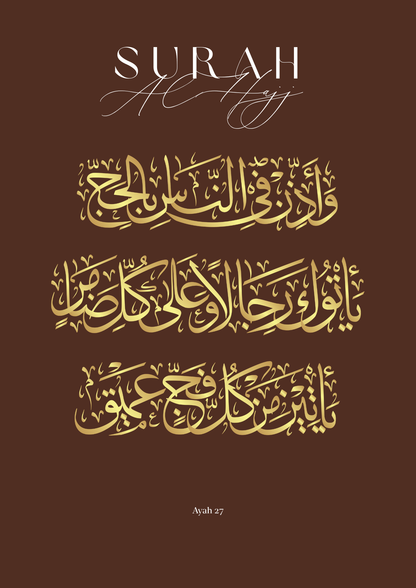 SURAH
Al-Hajj
وَأَذِّن فِي النَّاسِ بِالْحَجِّ
يَأْتُوكَ رِجَالًا وَعَلَىٰ كُلِّ ضَامِرٍ
يَأْتِينَ مِن كُلِّ فَجٍّ عَمِيقٍ
Ayah 27